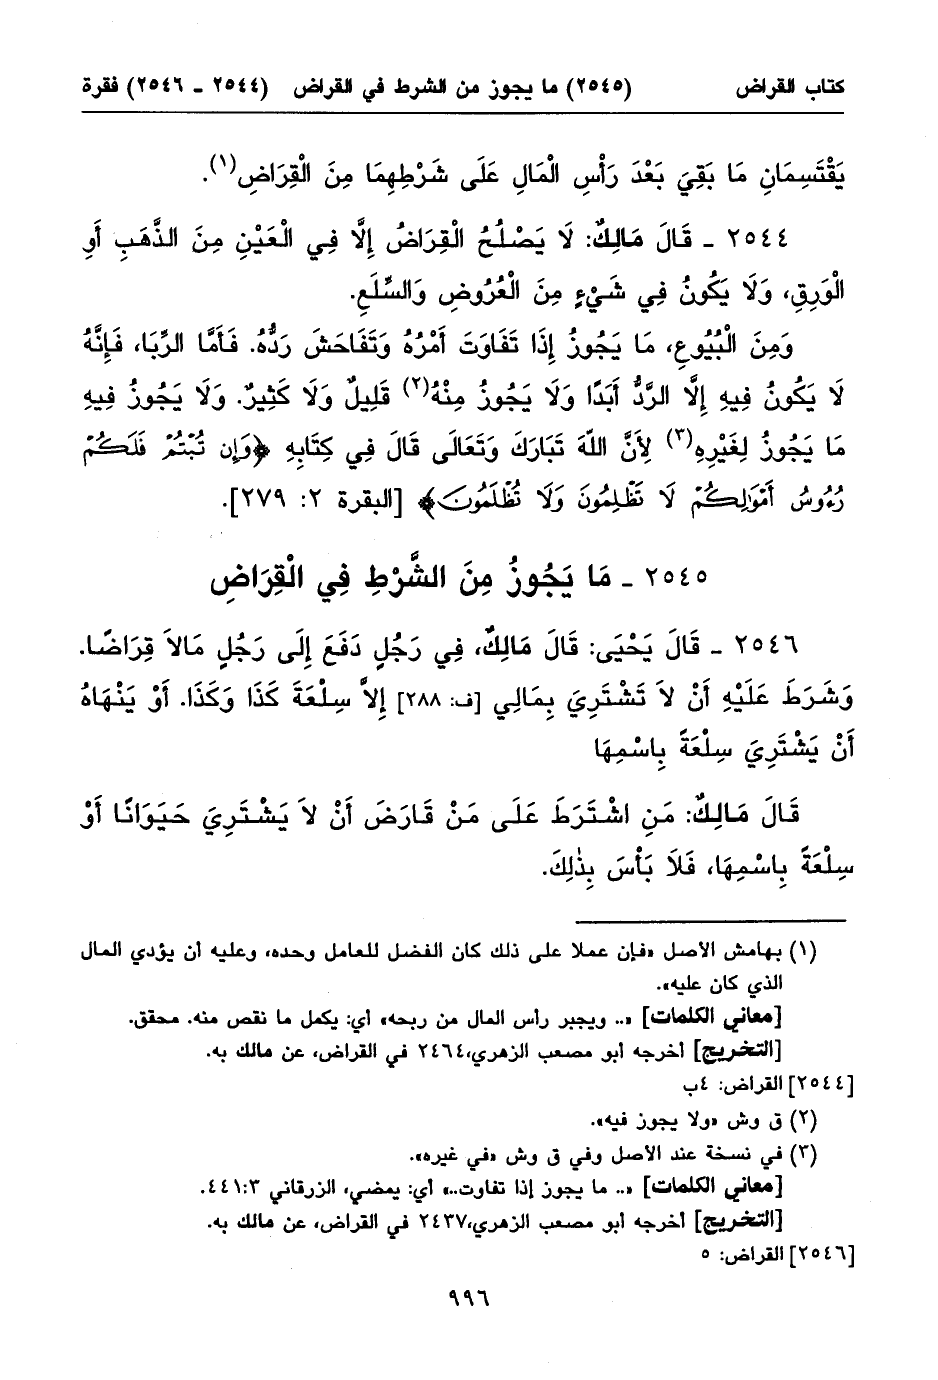 كتاب القراض (٢٥٤٥) ما يجوز من الشرط في القراض (٢٥٤٤ ـ ٢٥٤٦) فقرة
يَقْتَسِمَانِ مَا بَقِيَ بَعْدَ رَأْسِ الْمَالِ عَلَى شَرْطِهِمَا مِنَ الْقِرَاضِ(١).
٢٥٤٤ ـ قَالَ مَالِكٌ: لَا يَصْلُحُ الْقِرَاضُ إِلَّا فِي الْعَيْنِ مِنَ الذَّهَبِ أَوِ
الْوَرِقِ، وَلَا يَكُونُ فِي شَيْءٍ مِنَ الْعُرُوضِ وَالسِّلَعِ.
وَمِنَ الْبُيُوعِ، مَا يَجُوزُ إِذَا تَفَاوَتَ أَمْرُهُ وَتَفَاحَشَ رَدُّهُ. فَأَمَّا الرِّبَا، فَإِنَّهُ
لَا يَكُونُ فِيهِ إِلَّا الرَّدُّ أَبَدًا وَلَا يَجُوزُ مِنْهُ(٢) قَلِيلٌ وَلَا كَثِيرٌ. وَلَا يَجُوزُ فِيهِ
مَا يَجُوزُ لِغَيْرِهِ(٣) لِأَنَّ اللَّهَ تَبَارَكَ وَتَعَالَى قَالَ فِي كِتَابِهِ ﴿وَإِن تُبْتُمْ فَلَكُمْ
رُءُوسُ أَمْوَٰلِكُمْ لَا تَظْلِمُونَ وَلَا تُظْلَمُونَ﴾ [البقرة ٢: ٢٧٩].
٢٥٤٥ ـ مَا يَجُوزُ مِنَ الشَّرْطِ فِي الْقِرَاضِ
٢٥٤٦ ـ قَالَ يَحْيَى: قَالَ مَالِكٌ، فِي رَجُلٍ دَفَعَ إِلَى رَجُلٍ مَالاً قِرَاضًا.
وَشَرَطَ عَلَيْهِ أَنْ لاَ تَشْتَرِيَ بِمَالِي [ف: ٢٨٨] إِلاَّ سِلْعَةَ كَذَا وَكَذَا. أَوْ يَنْهَاهُ
أَنْ يَشْتَرِيَ سِلْعَةً بِاسْمِهَا
قَالَ مَالِكٌ: مَنِ اشْتَرَطَ عَلَى مَنْ قَارَضَ أَنْ لاَ يَشْتَرِيَ حَيَوَانًا أَوْ
سِلْعَةً بِاسْمِهَا، فَلاَ بَأْسَ بِذٰلِكَ.
(١) بهامش الأصل «فإن عملا على ذلك كان الفضل للعامل وحده، وعليه أن يؤدي المال
الذي كان عليه».
[معاني الكلمات] «.. ويجبر رأس المال من ربحه» أي: يكمل ما نقص منه. محقق.
[التخريج] أخرجه أبو مصعب الزهري، ٢٤٦٤ في القراض، عن مالك به.
[٢٥٤٤] القراض: ٤ب
(٢) ق وش «ولا يجوز فيه».
(٣) في نسخة عند الأصل وفي ق وش «في غيره».
[معاني الكلمات] «.. ما يجوز إذا تفاوت..» أي: يمضي، الزرقاني ٤٤١:٣.
[التخريج] أخرجه أبو مصعب الزهري، ٢٤٣٧ في القراض، عن مالك به.
[٢٥٤٦] القراض: ٥
٩٩٦